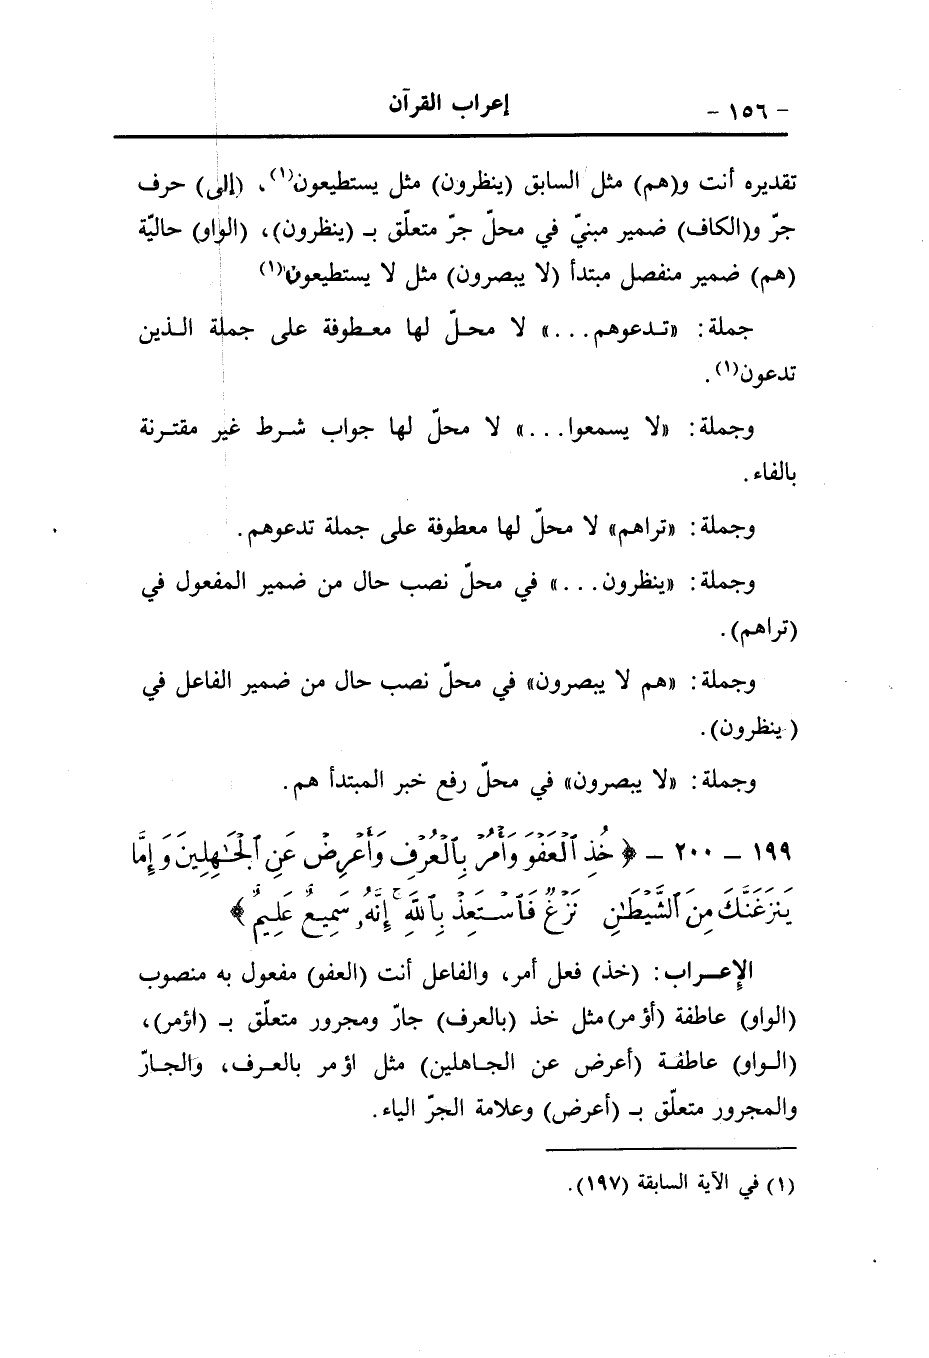 - ١٥٦ - إعراب القرآن
تقديره أنت و(هم) مثل السابق (ينظرون) مثل يستطيعون(١)، (إلى) حرف
جرّ و(الكاف) ضمير مبنيّ في محلّ جرّ متعلّق بـ (ينظرون)، (الواو) حاليّة
(هم) ضمير منفصل مبتدأ (لا يبصرون) مثل لا يستطيعون(١)
جملة: «تـدعوهم...» لا محـلّ لها معـطوفة على جملة الـذين
تدعون(١).
وجملة: «لا يسمعوا...» لا محلّ لها جواب شـرط غير مقتـرنة
بالفاء.
وجملة: «تراهم» لا محلّ لها معطوفة على جملة تدعوهم.
وجملة: «ينظرون...» في محلّ نصب حال من ضمير المفعول في
(تراهم).
وجملة: «هم لا يبصرون» في محلّ نصب حال من ضمير الفاعل في
(ينظرون).
وجملة: «لا يبصرون» في محلّ رفع خبر المبتدأ هم.
١٩٩ - ٢٠٠ - ﴿خُذِ ٱلْعَفْوَ وَأْمُرْ بِٱلْعُرْفِ وَأَعْرِضْ عَنِ ٱلْجَٰهِلِينَ وَإِمَّا
يَنزَغَنَّكَ مِنَ ٱلشَّيْطَٰنِ نَزْغٌ فَٱسْتَعِذْ بِٱللَّهِ ۚ إِنَّهُۥ سَمِيعٌ عَلِيمٌ﴾
الإعـراب: (خذ) فعل أمر، والفاعل أنت (العفو) مفعول به منصوب
(الواو) عاطفة (أؤمر) مثل خذ (بالعرف) جارّ ومجرور متعلّق بـ (اؤمر)،
(الـواو) عاطفـة (أعرض عن الجـاهلين) مثل اؤمر بالعـرف، والجـارّ
والمجرور متعلّق بـ (أعرض) وعلامة الجرّ الياء.
(١) في الآية السابقة (١٩٧).